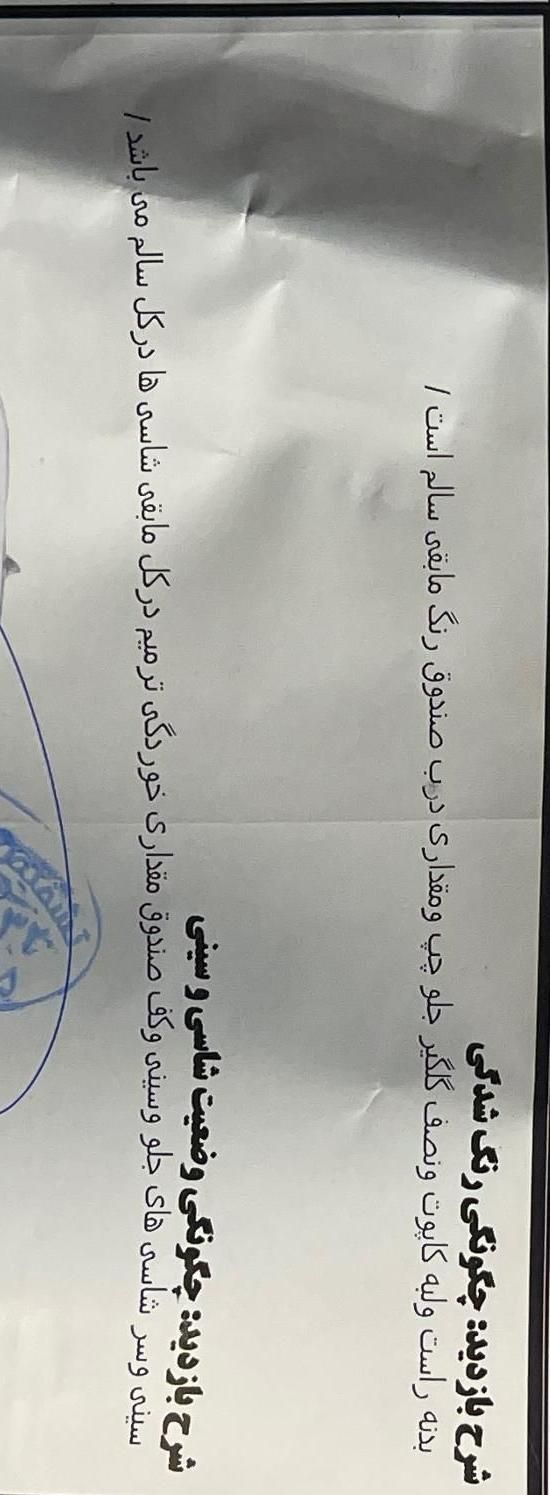 شرح بازدید: چگونگی رنگ شدگی
بدنه راست ولبه کاپوت ونصف گلگیر جلو چپ ومقداری درب صندوق رنگ مابقی سالم است /
شرح بازدید: چگونگی وضعیت شاسی و سینی
سینی وسر شاسی های جلو وسینی وکف صندوق مقداری خوردگی ترمیم درکل مابقی شاسی ها درکل سالم می باشد /